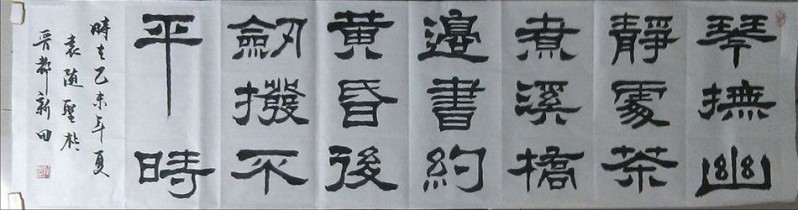 琴撫幽
靜處茶
煮溪橋
邊書約
黄昏後
劒撥不
平時
時在乙未年夏
袁随聖於
晋都新田